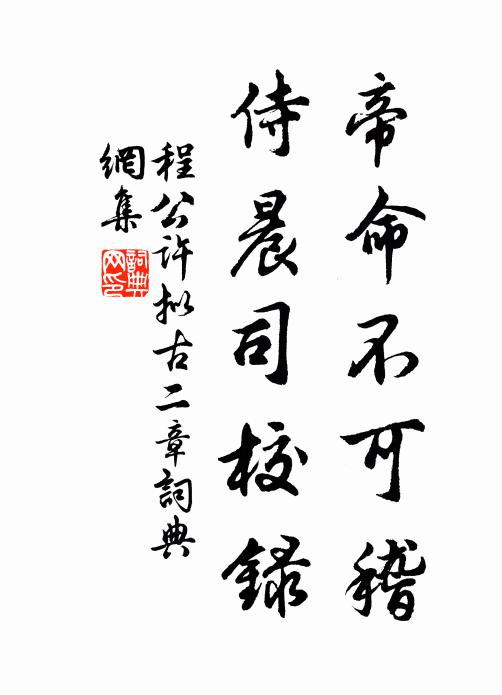 帝命不可稽
侍晨司校錄
程公許拟古二章詞典
網集
詞典网印